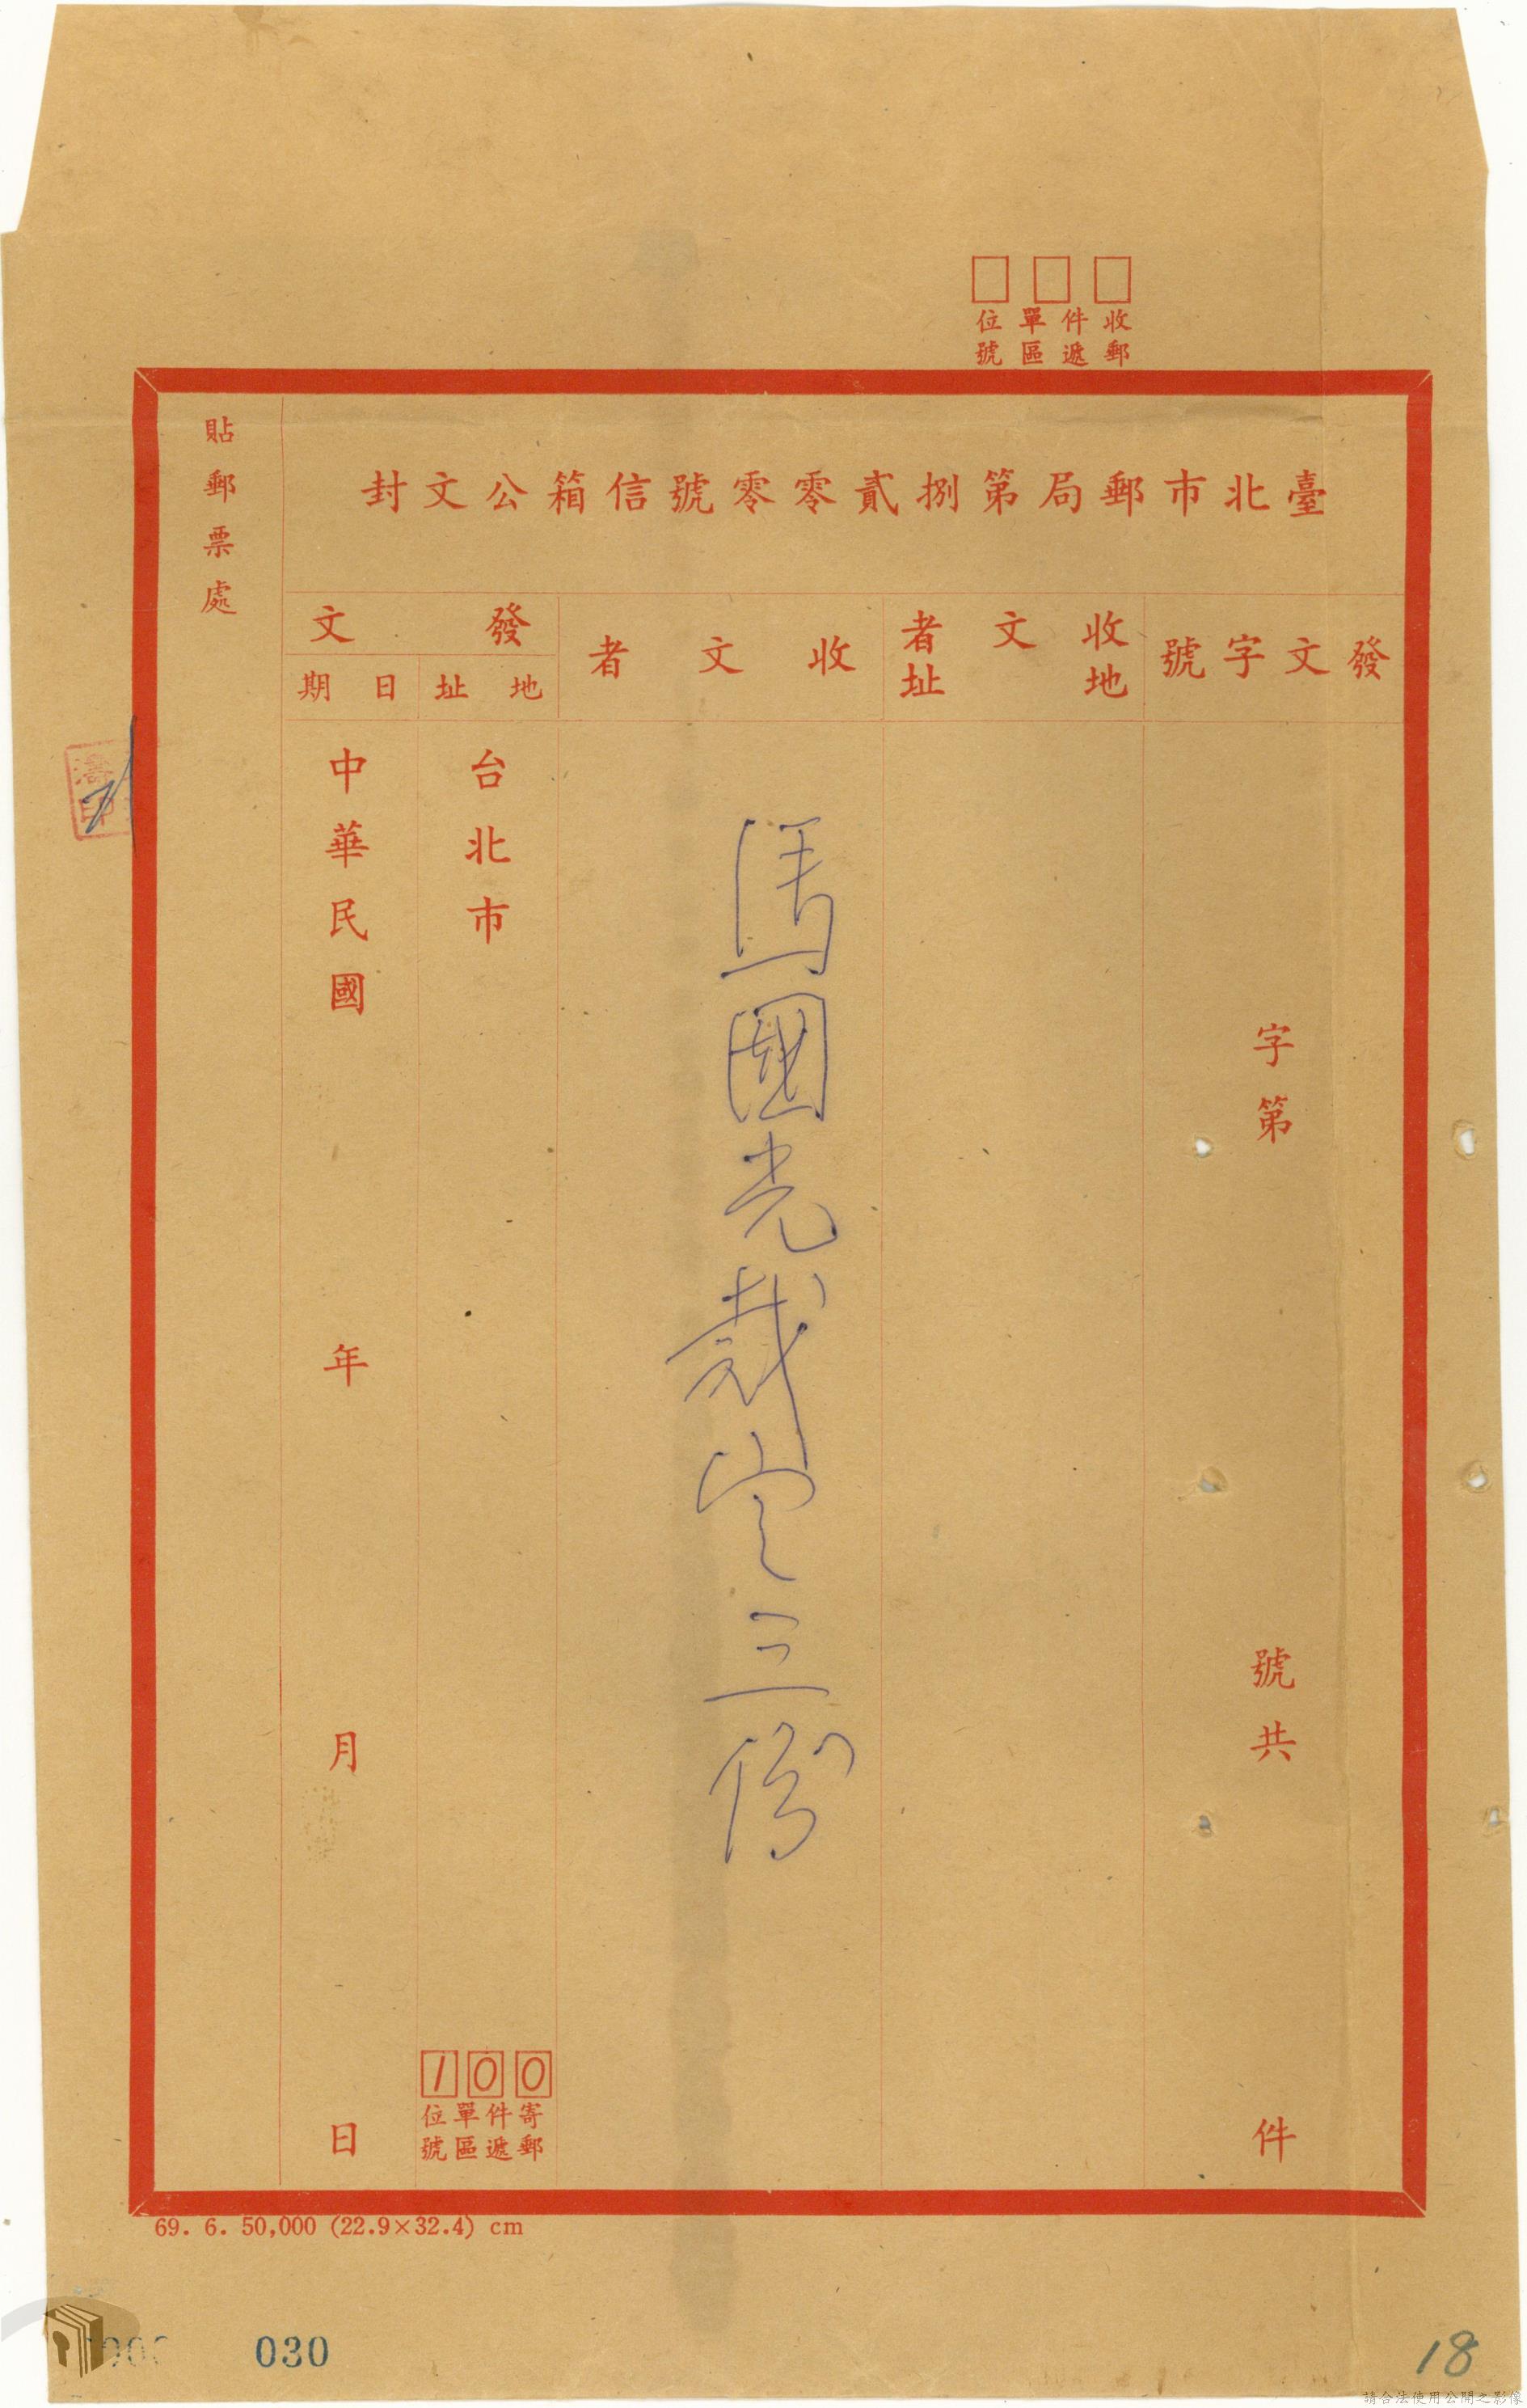 收件單位
郵遞區號
臺北市郵局第捌貳零零號信箱公文封
發文字號
字第
號共
件
收文者
地址
收文者
馬國光裁定三份
發文
地址
台北市
100
寄件單位
郵遞區號
日期
中華民國
年
月
日
貼郵票處
69. 6. 50,000 (22.9×32.4) cm
030
18
請合法使用公開之影像